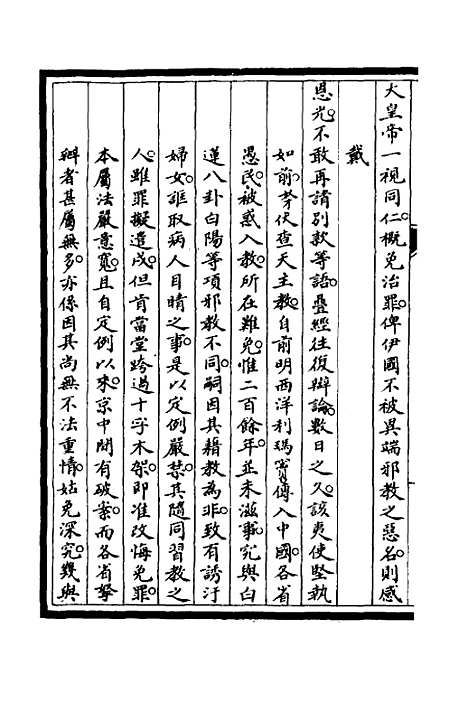 大皇帝一視同仁概免治罪俾伊國不被異端邪教之惡名則感
戴
恩光不敢再請別款等語疊經往復辯論數日之久該夷使堅執
如前等伏查天主教自前明西洋利瑪竇傳入中國各省
愚民被惑入教所在難免惟二百餘年並未滋事究與白
蓮八卦白陽等項邪教不同嗣因其藉教為非致有誘汙
婦女誆取病人目睛之事是以定例嚴禁其隨同習教之
人雖罪擬遣戍但肯當堂跨過十字木架即准改悔免罪
本屬法嚴意寬且自定例以來京中間有破案而各省拏
辦者甚屬無多亦係因其尚無不法重情姑免深究幾與